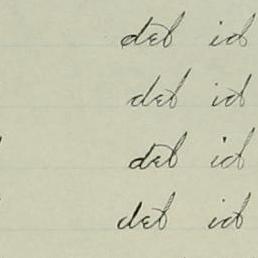 del id
del id
del id
del id